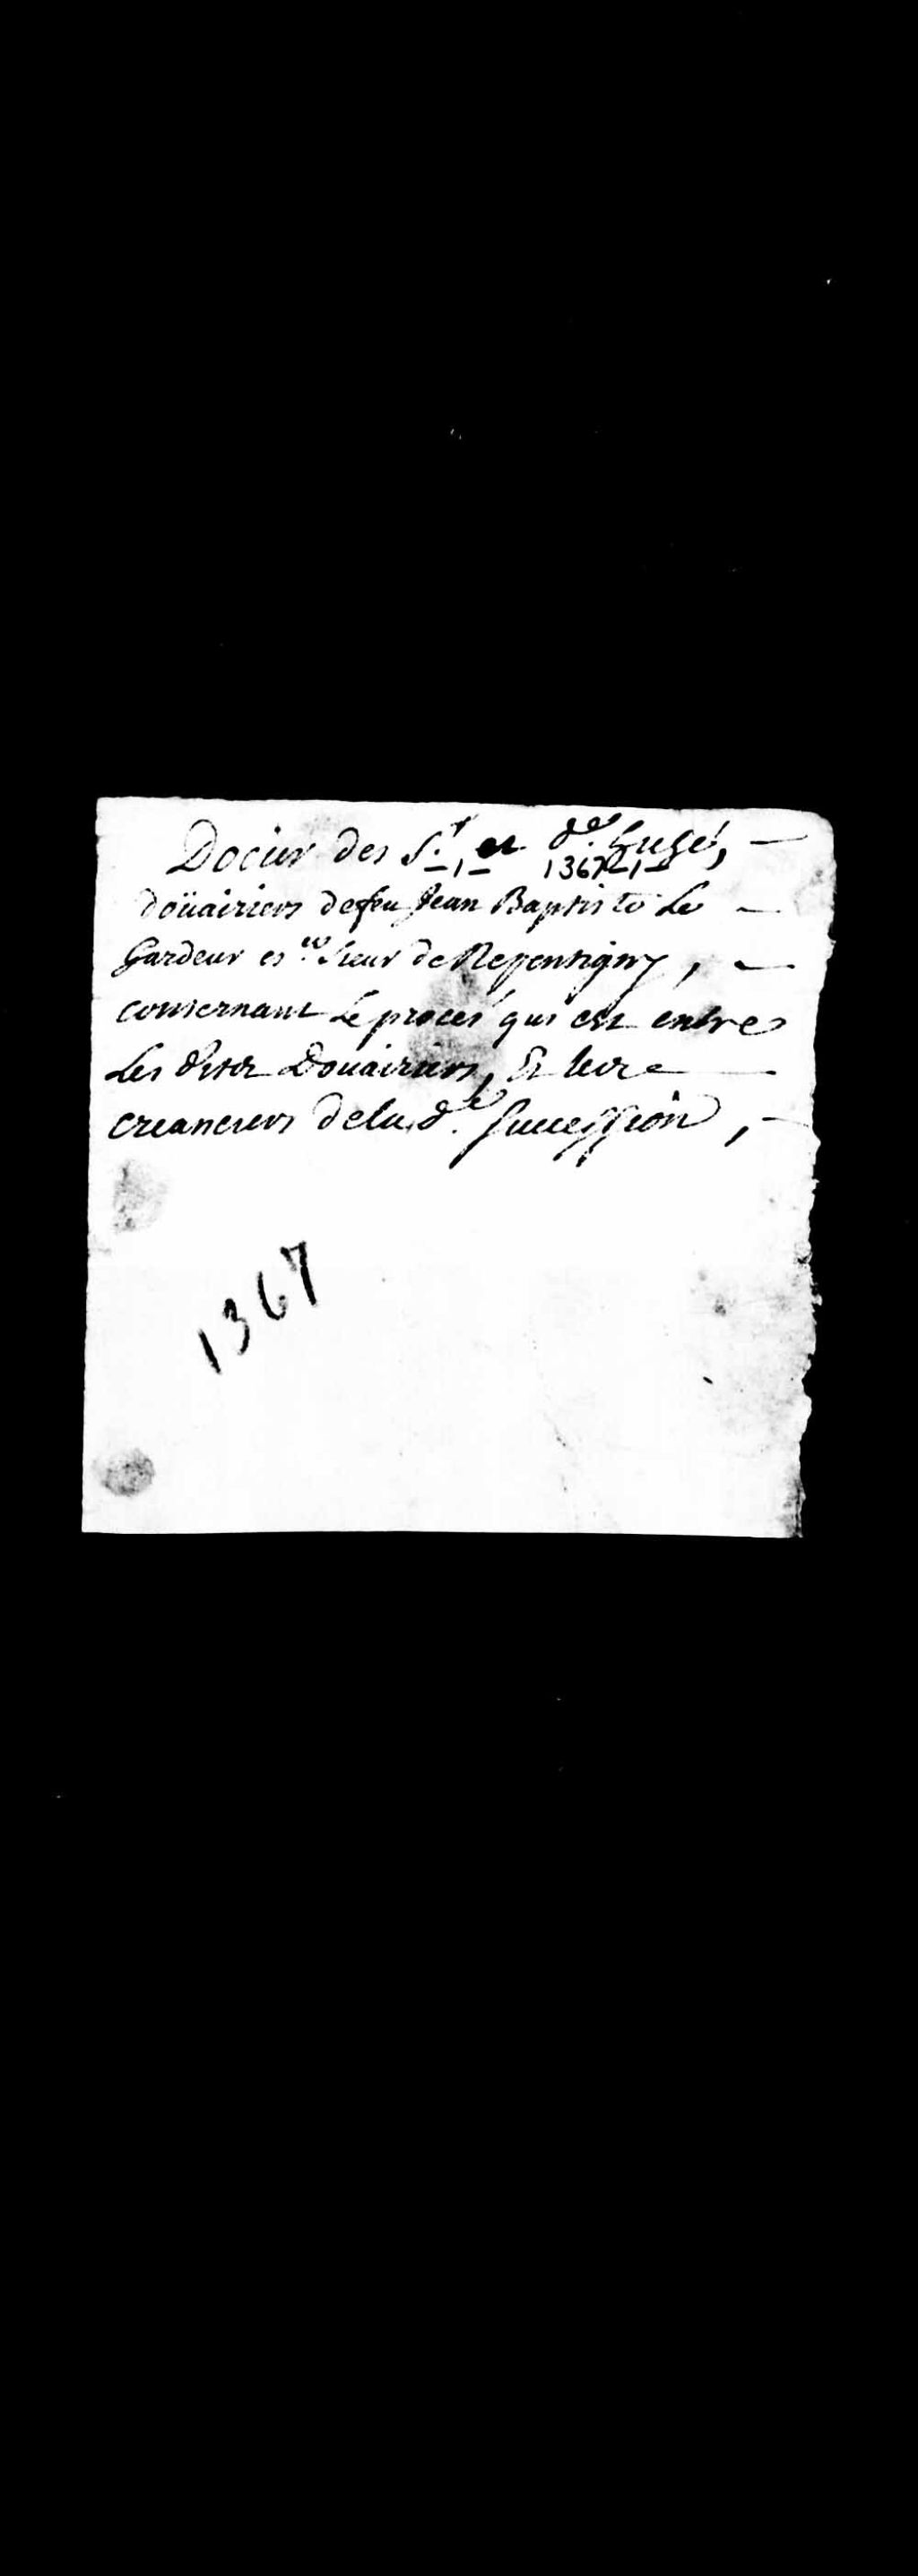 Docier des S.r et d.e Gugé, —
1367
doüairiers de feu Jean Baptiste Le —
Gardeur es.er Sieur de Repentigny, —
consernant Le procés qui est entre
Les dites Douairiers, Et leure —
creanciers dela d.e Succession, —
1367